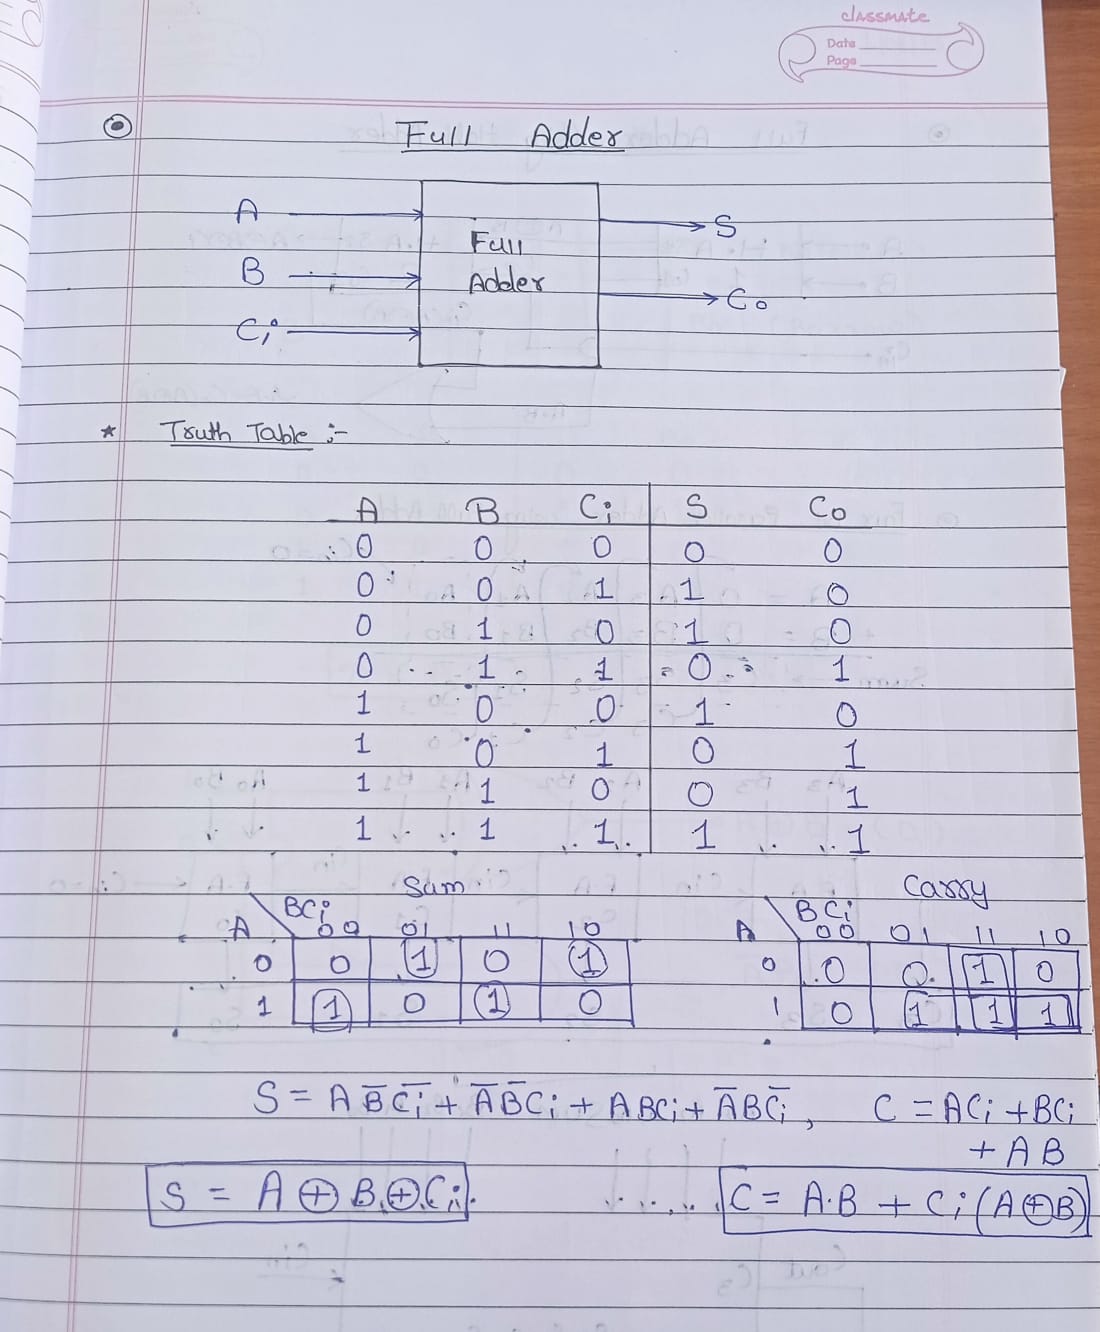 classmate
Date
Page
Full Adder
A
B
Ci
Full
Adder
S
Co
* Truth Table :-
A B Ci S Co
0 0 0 0 0
0 0 1 1 0
0 1 0 1 0
0 1 1 0 1
1 0 0 1 0
1 0 1 0 1
1 1 0 0 1
1 1 1 1 1
Sum
A BCi 00 01 11 10
0 0 1 0 1
1 1 0 1 0
Carry
A BCi 00 01 11 10
0 0 0 1 0
1 0 1 1 1
S = A B̅ C̅i + A̅ B̅ Ci + ABCi + A̅ B C̅i , C = ACi + BCi
+ AB
S = A ⊕ B ⊕ Ci
C = A·B + Ci (A⊕B)